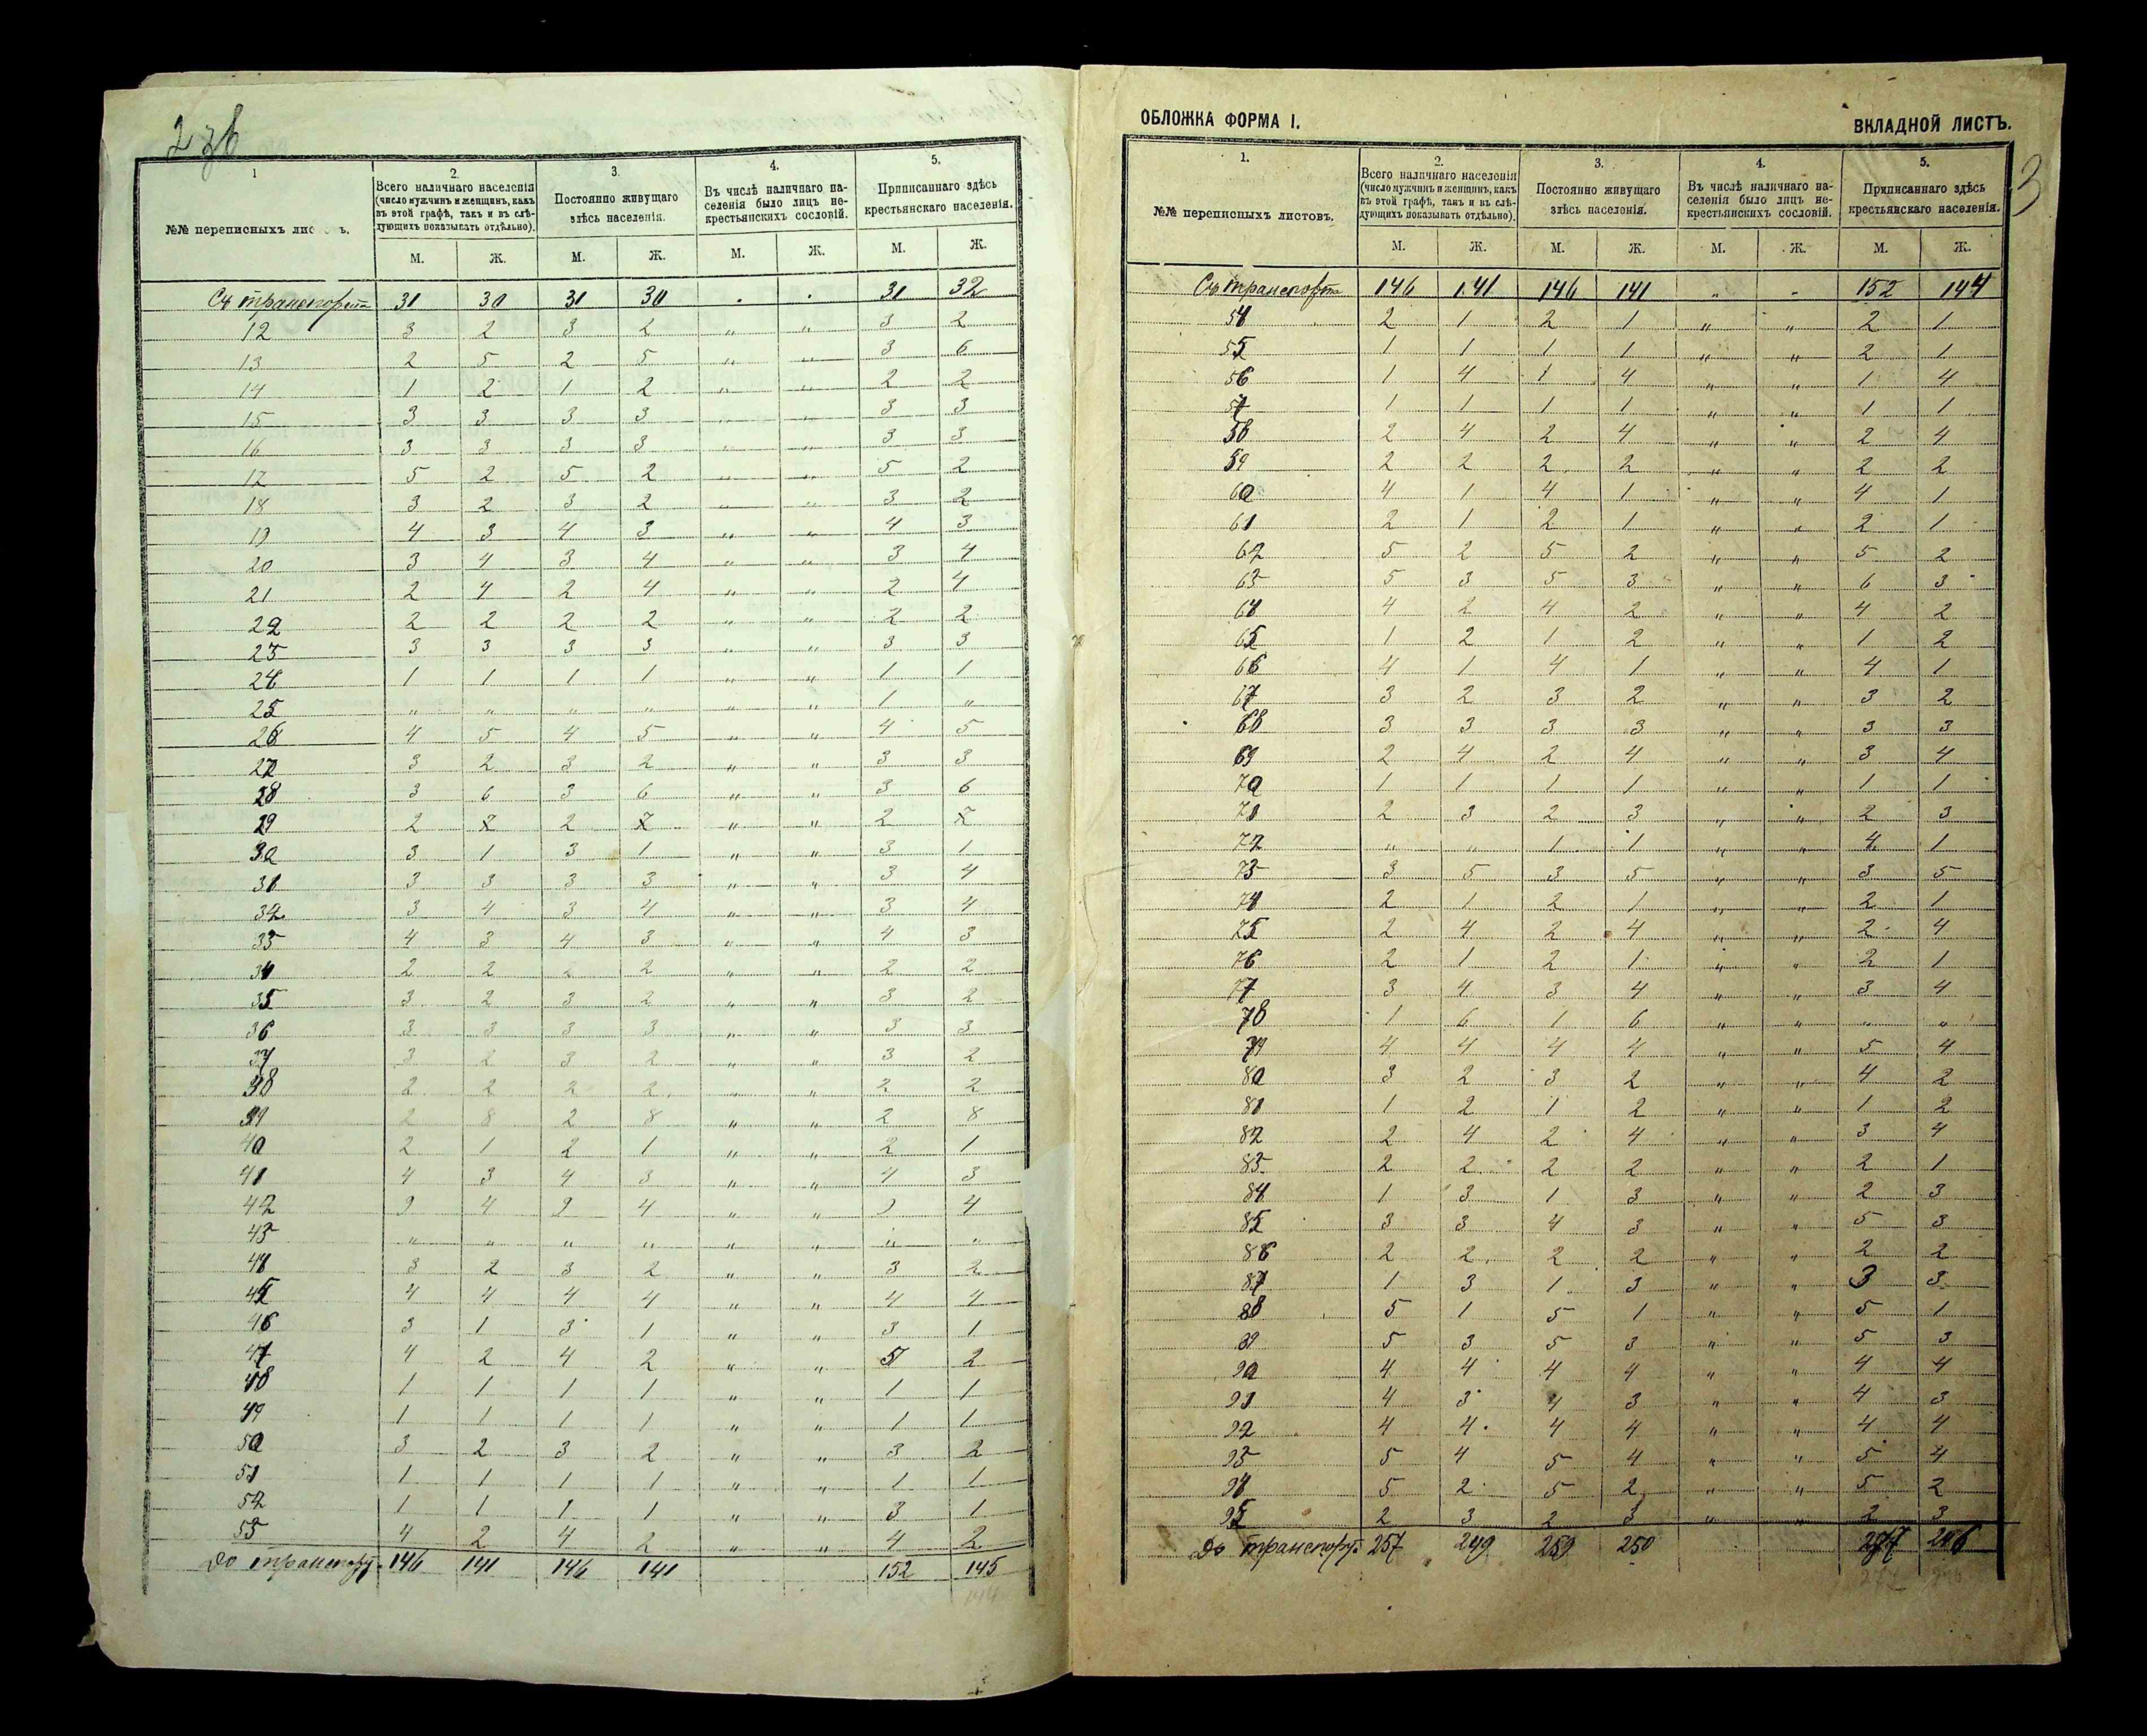 2 зв
1
2.
3.
4.
5.
№№ переписныхъ листовъ.
Всего наличнаго населенія
(число мужчинъ и женщинъ, какъ
въ этой графѣ, такъ и въ слѣ-
дующихъ показывать отдѣльно).
Постоянно живущаго
здѣсь населенія.
Въ числѣ наличнаго на-
селенія было лицъ не-
крестьянскихъ сословій.
Приписаннаго здѣсь
крестьянскаго населенія.
М. Ж. М. Ж. М. Ж. М. Ж.
Съ транспорта 31 30 31 30 . . 31 32
12 3 2 3 2 „ „ 3 2
13 2 5 2 5 „ „ 3 6
14 1 2 1 2 „ „ 2 2
15 3 3 3 3 „ „ 3 3
16 3 3 3 3 „ „ 3 3
17 5 2 5 2 „ „ 5 2
18 3 2 3 2 „ „ 3 2
19 4 3 4 3 „ „ 4 3
20 3 4 3 4 „ „ 3 4
21 2 4 2 4 „ „ 2 4
22 2 2 2 2 „ „ 2 2
23 3 3 3 3 „ „ 3 3
24 1 1 1 1 „ „ 1 1
25 „ „ „ „ „ „ 1 „
26 4 5 4 5 „ „ 4 5
27 3 2 3 2 „ „ 3 3
28 3 6 3 6 „ „ 3 6
29 2 2 „ „ 2
30 3 1 3 1 „ „ 3 1
31 3 3 3 3 „ „ 3 4
32 3 4 3 4 „ „ 3 4
33 4 3 4 3 „ „ 4 3
34 2 2 2 2 „ „ 2 2
35 3 2 3 2 „ „ 3 2
36 3 3 3 3 „ „ 3 3
37 3 2 3 2 „ „ 3 2
38 2 2 2 2 „ „ 2 2
39 2 8 2 8 „ „ 2 8
40 2 1 2 1 „ „ 2 1
41 4 3 4 3 „ „ 4 3
42 4 4 „ „ 4
43 „ „ „ „ „ „ „ „
44 3 2 3 2 „ „ 3 2
45 4 4 4 4 „ „ 4 4
46 3 1 3 1 „ „ 3 1
47 4 2 4 2 „ „ 5 2
48 1 1 1 1 „ „ 1 1
49 1 1 1 1 „ „ 1 1
50 3 2 3 2 „ „ 3 2
51 1 1 1 1 „ „ 1 1
52 1 1 1 1 „ „ 3 1
53 4 2 4 2 „ „ 4 2
До транспорт. 146 141 146 141 152 145
144
ОБЛОЖКА ФОРМА I.
ВКЛАДНОЙ ЛИСТЪ.
3
1.
2.
3.
4.
5.
№№ переписныхъ листовъ.
Всего наличнаго населенія
(число мужчинъ и женщинъ, какъ
въ этой графѣ, такъ и въ слѣ-
дующихъ показывать отдѣльно).
Постоянно живущаго
здѣсь населенія.
Въ числѣ наличнаго на-
селенія было лицъ не-
крестьянскихъ сословій.
Приписаннаго здѣсь
крестьянскаго населенія.
М. Ж. М. Ж. М. Ж. М. Ж.
Съ транспорта 146 141 146 141 „ „ 152 144
54 2 1 2 1 „ „ 2 1
55 1 1 1 1 „ „ 2 1
56 1 4 1 4 „ „ 1 4
57 1 1 1 1 „ „ 1 1
58 2 4 2 4 „ „ 2 4
59 2 2 2 2 „ „ 2 2
60 4 1 4 1 „ „ 4 1
61 2 1 2 1 „ „ 2 1
62 5 2 5 2 „ „ 5 2
63 5 3 5 3 „ „ 6 3
64 4 2 4 2 „ „ 4 2
65 1 2 1 2 „ „ 1 2
66 4 1 4 1 „ „ 4 1
67 3 2 3 2 „ „ 3 2
68 3 3 3 3 „ „ 3 3
69 2 4 2 4 „ „ 3 4
70 1 1 1 1 „ „ 1 1
71 2 3 2 3 „ „ 2 3
72 „ „ 1 1 „ „ 4 1
73 3 5 3 5 „ „ 3 5
74 2 1 2 1 „ „ 2 1
75 2 4 2 4 „ „ 2 4
76 2 1 2 1 „ „ 2 1
77 3 4 3 4 „ „ 3 4
78 1 6 1 6 „ „ „ „
79 4 4 4 4 „ „ 5 4
80 3 2 3 2 „ „ 4 2
81 1 2 1 2 „ „ 1 2
82 2 4 2 4 „ „ 3 4
83 2 2 2 2 „ „ 2 1
84 1 3 1 3 „ „ 2 3
85 3 3 4 3 „ „ 5 3
86 2 2 2 2 „ „ 2 2
87 1 3 1 3 „ „ 3 3
88 5 1 5 1 „ „ 5 1
89 5 3 5 3 „ „ 5 3
90 4 4 4 4 „ „ 4 4
91 4 3 4 3 „ „ 4 3
92 4 4 4 4 „ „ 4 4
93 5 4 5 4 „ „ 5 4
94 5 2 5 2 „ „ 5 2
95 2 3 2 3 „ „ 2 3
До транспорт. 257 249 259 250 246